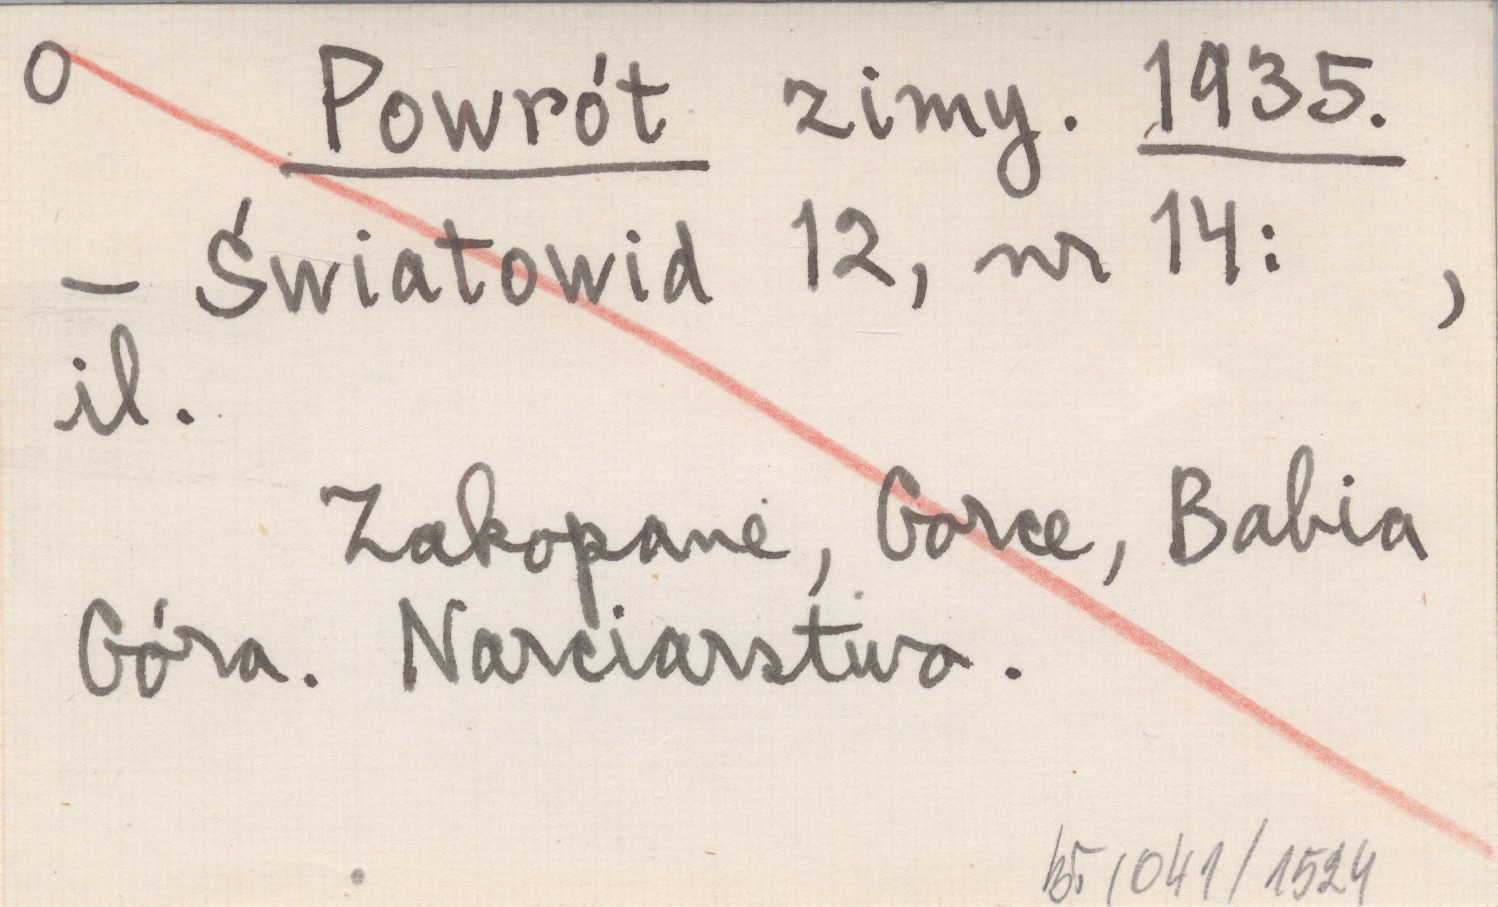 O Powrót zimy. 1935.
– Światowid 12, nr 14: ,
il.
Zakopane, Gorce, Babia
Góra. Narciarstwo.
041/1524